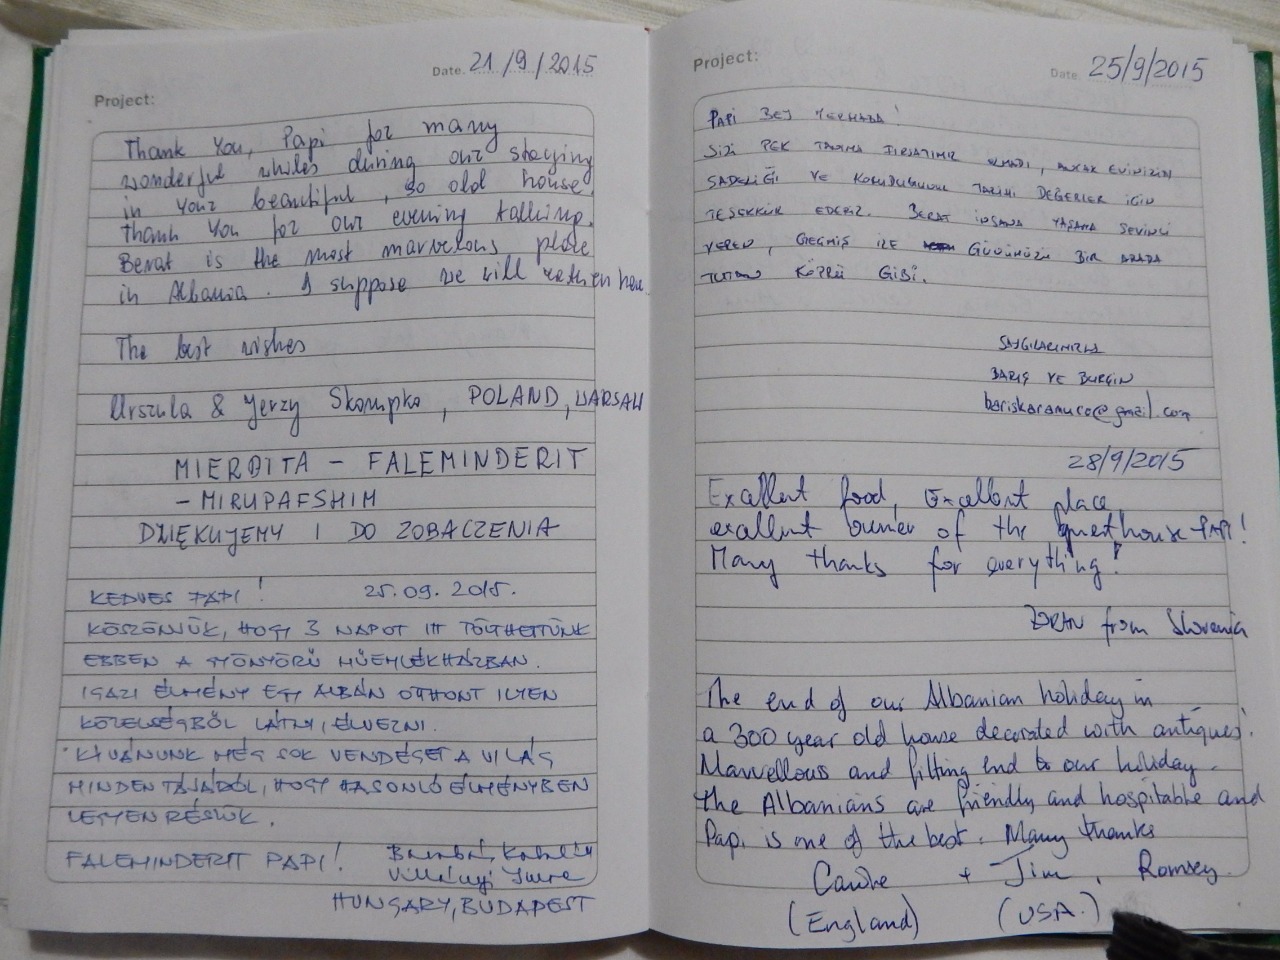 Date. 21/9/2015
Project:
Thank You, Papi for many
wonderful whiles during our staying
in your beautiful, so old house.
Thank You for our evening talking.
Berat is the most marvelous place
in Albania. I suppose we will
The best wishes
Urszula & Jerzy, POLAND, WARSAW
MIERDITA – FALEMINDERIT
– MIRUPAFSHIM
DZIĘKUJEMY I DO ZOBACZENIA
KEDVES PAPI! 25.09.2015.
KÖSZÖNJÜK, HOGY 3 NAPOT ITT TÖLTHETTÜNK
EBBEN A GYÖNYÖRŰ MŰEMLÉKHÁZBAN.
IGAZI ÉLMÉNY EGY ALBÁN OTTHONT ILYEN
KÖZELSÉGBŐL LÁTNI, ÉLVEZNI.
KÍVÁNUNK MÉG SOK VENDÉGET A VILÁG
MINDEN TÁJÁRÓL, HOGY HASONLÓ ÉLMÉNYBEN
LEGYEN RÉSÜK.
FALEMINDERIT PAPI!
Imre
HUNGARY, BUDAPEST
Project:
Date. 25/9/2015
PAPİ BEY MERHABA!
SİZİ PEK TANIMA FIRSATIMIZ OLMADI, ANCAK EVİNİZİN
SADELİĞİ VE KORUDUĞUNUZ TARİHİ DEĞERLER İÇİN
TEŞEKKÜR EDERİZ. BERAT İNSANA YAŞAMA SEVİNCİ
VEREN, GEÇMİŞ İLE GÜNÜMÜZÜ BİR ARADA
TUTAN KÖPRÜ GİBİ.
SAYGILARIMIZLA
BARIŞ VE BURÇİN
28/9/2015
Excellent food, Excellent place,
excellent owner of the guesthouse PAPI!
Many thanks for everything!
from Slovenia
The end of our Albanian holiday in
a 300 year old house decorated with antiques.
Marvellous and fitting end to our holiday.
The Albanians are friendly and hospitable and
Papi is one of the best. Many thanks
+ Jim, Romsey
(England) (USA.)